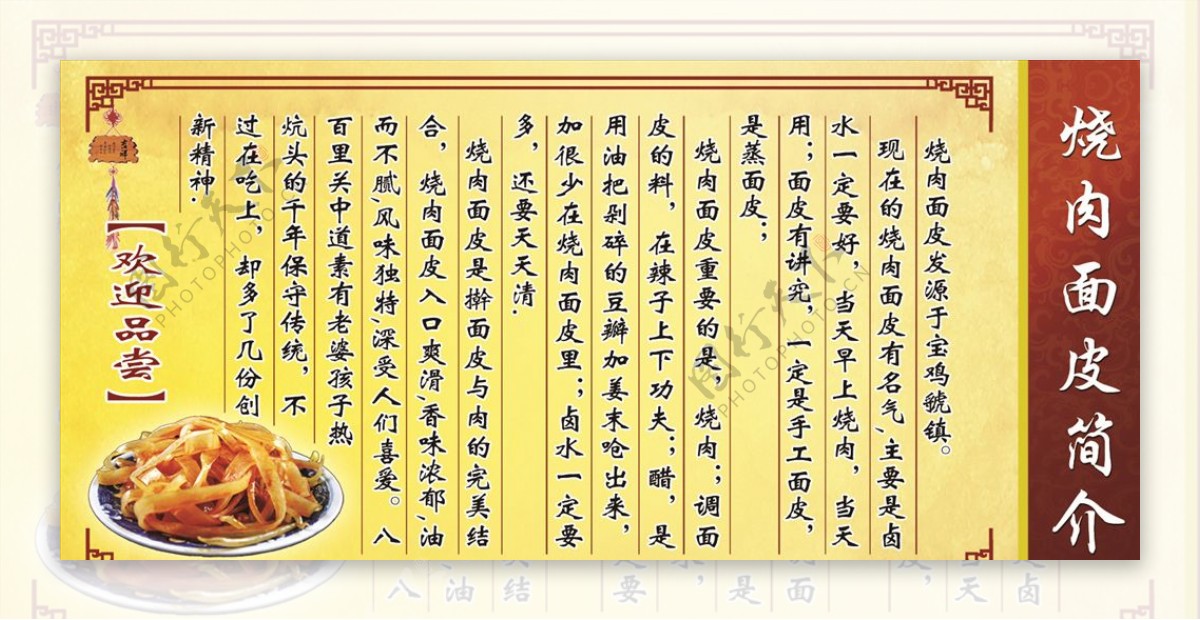 烧肉面皮简介
烧肉面皮发源于宝鸡虢镇。
现在的烧肉面皮有名气、主要是卤
水一定要好,当天早上烧肉,当天
用;面皮有讲究,一定是手工面皮,
是蒸面皮;
烧肉面皮重要的是,烧肉;调面
皮的料,在辣子上下功夫;醋,是
用油把剁碎的豆瓣加姜末呛出来,
加很少在烧肉面皮里;卤水一定要
多,还要天天清.
烧肉面皮是擀面皮与肉的完美结
合,烧肉面皮入口爽滑、香味浓郁、油
而不腻、风味独特、深受人们喜爱。八
百里关中道素有老婆孩子热
炕头的千年保守传统,不
过在吃上,却多了几份创
新精神.
【欢迎品尝】